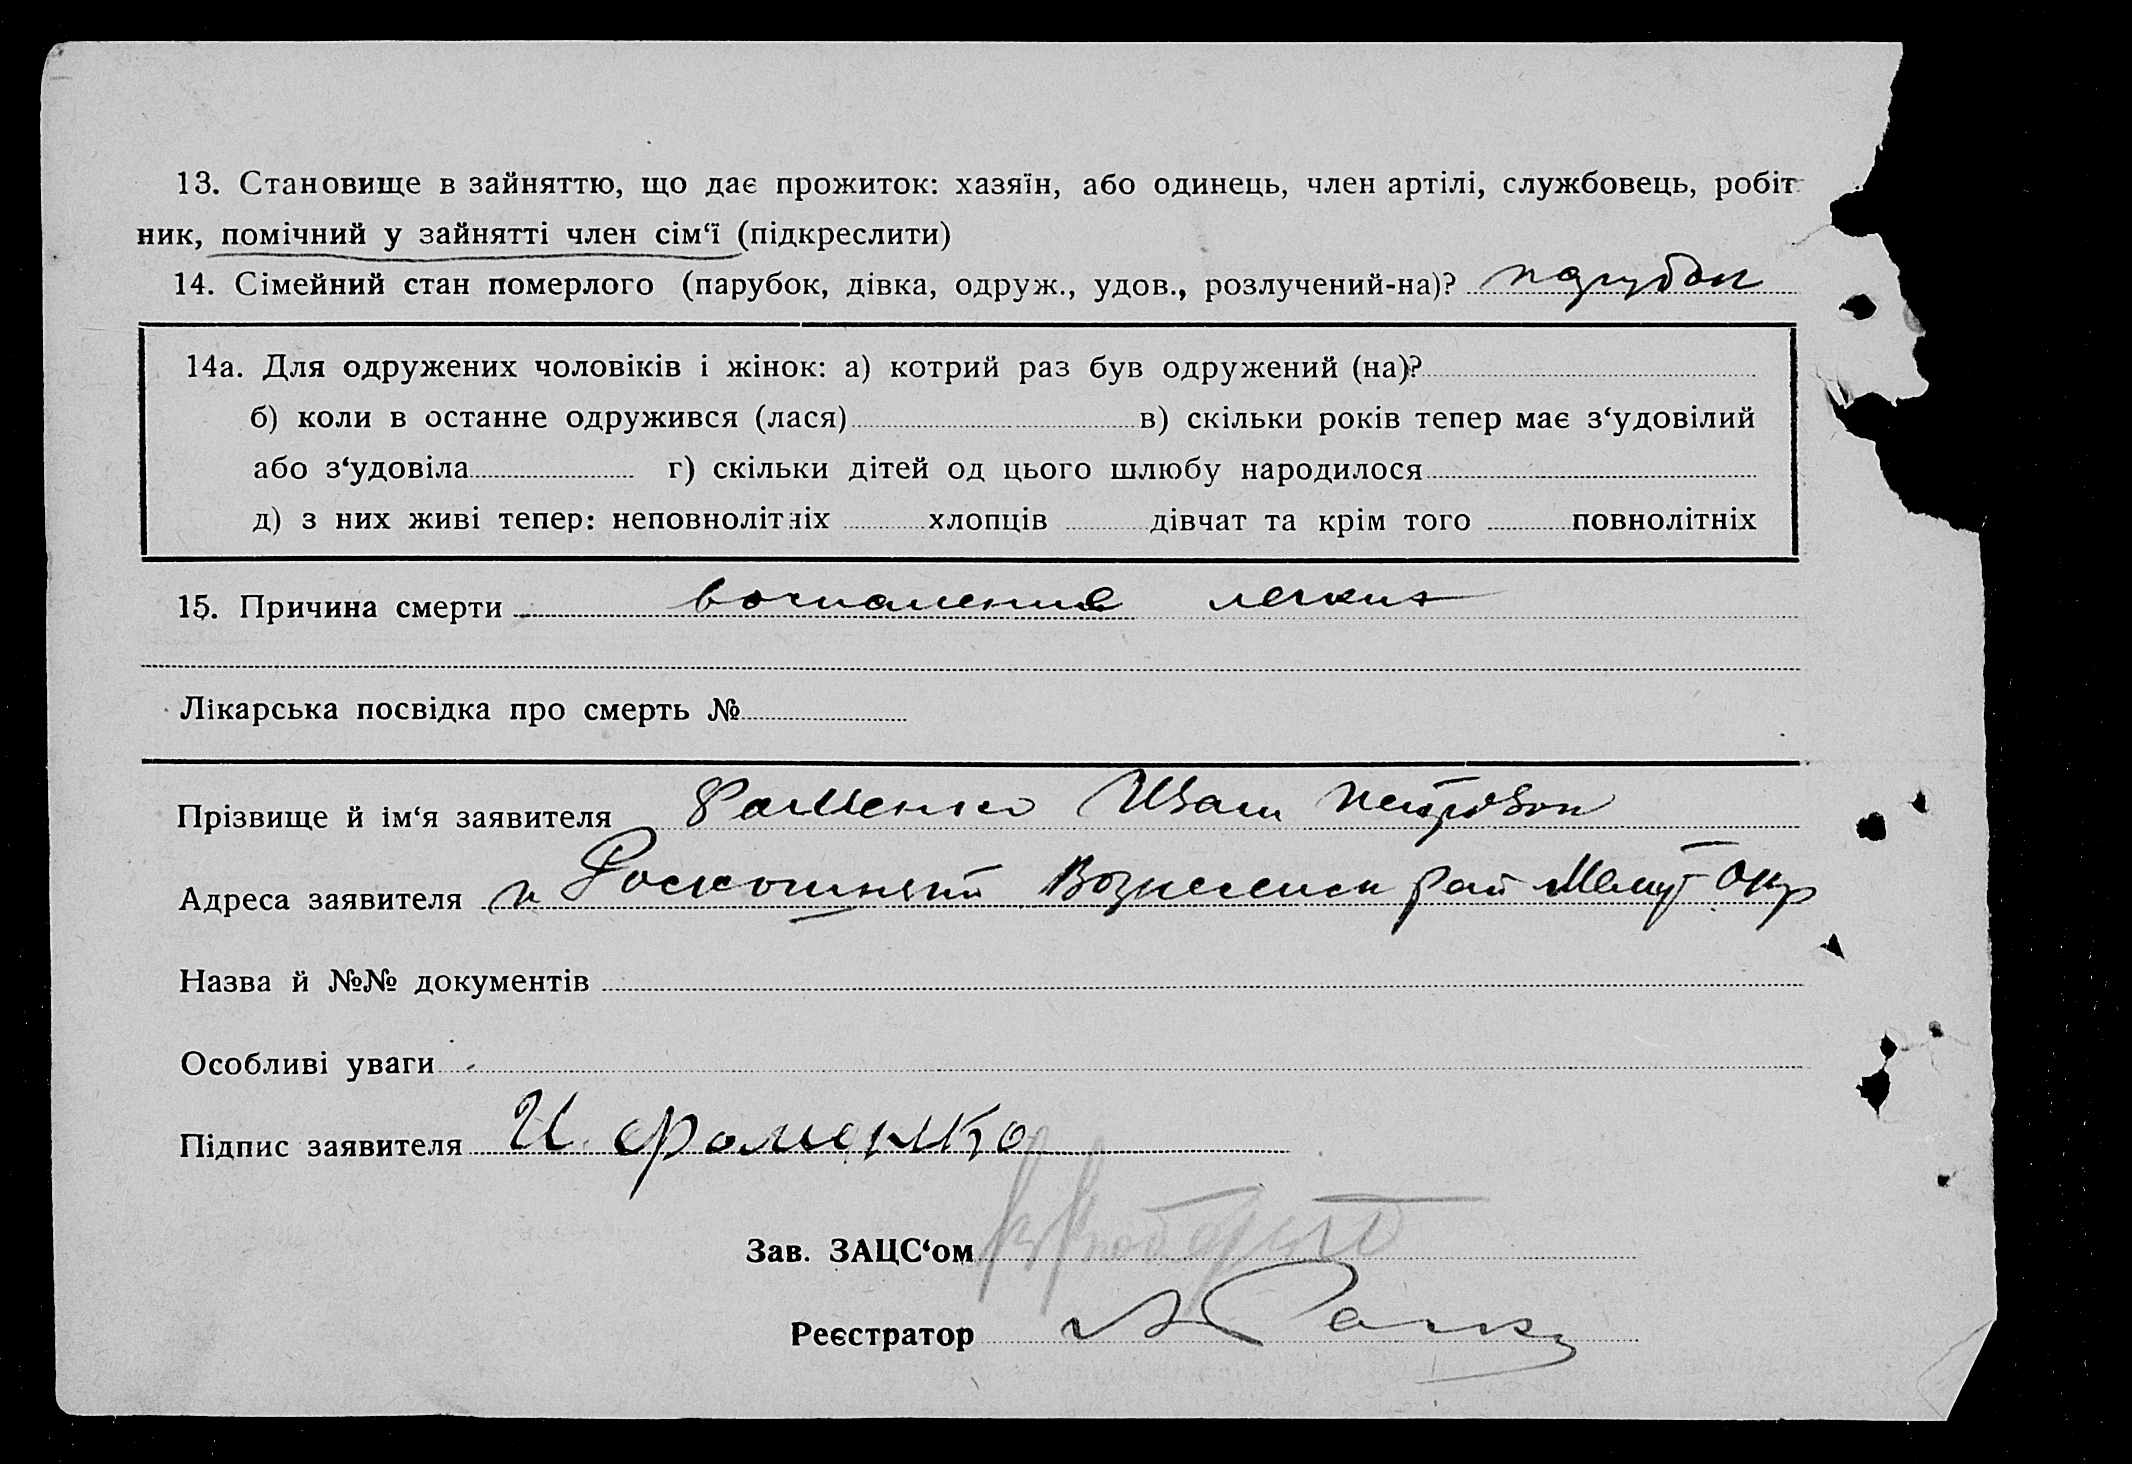 13. Становище в зайняттю, що дає прожиток: хазяїн, або одинець, член артілі, службовець, робіт-
ник, помічний у зайнятті член сім‘ї (підкреслити)
14. Сімейний стан померлого (парубок, дівка, одруж., удов., розлучений-на)? парубок
14а. Для одружених чоловіків і жінок: а) котрий раз був одружений (на)?
б) коли в останнє одружився (лася) в) скільки років тепер має з‘удовілий
або з‘удовіла г) скільки дітей од цього шлюбу народилося
д) з них живі тепер: неповнолітніх хлопців дівчат та крім того повнолітніх
15. Причина смерти воспаление легких
Лікарська посвідка про смерть №
Прізвище й ім‘я заявителя Фоменко Иван Петрович
Адреса заявителя п Роскошный Вознесенск рай
Назва й №№ документів
Особливі уваги
Підпис заявителя И. Фоменко
Зав. ЗАЦС‘ом
Реєстратор